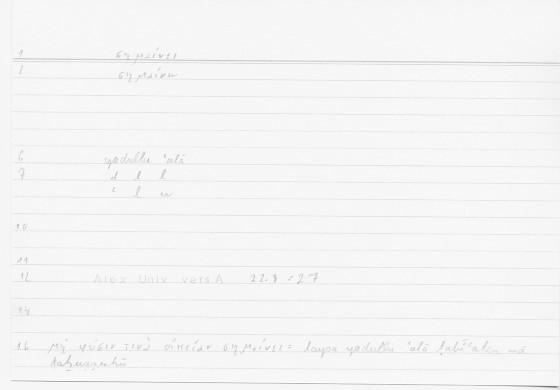 1 σημαίνει
2 σημαίνω
6 yadullu ʿalā
7 d l l
ʿ l w
10
11
12 Alex Univ vers.A 22.3 = 27
14
16 Μὴ φύσιν τινὰ οἰκείαν σημαίνει = laysa yadullu ʿalā